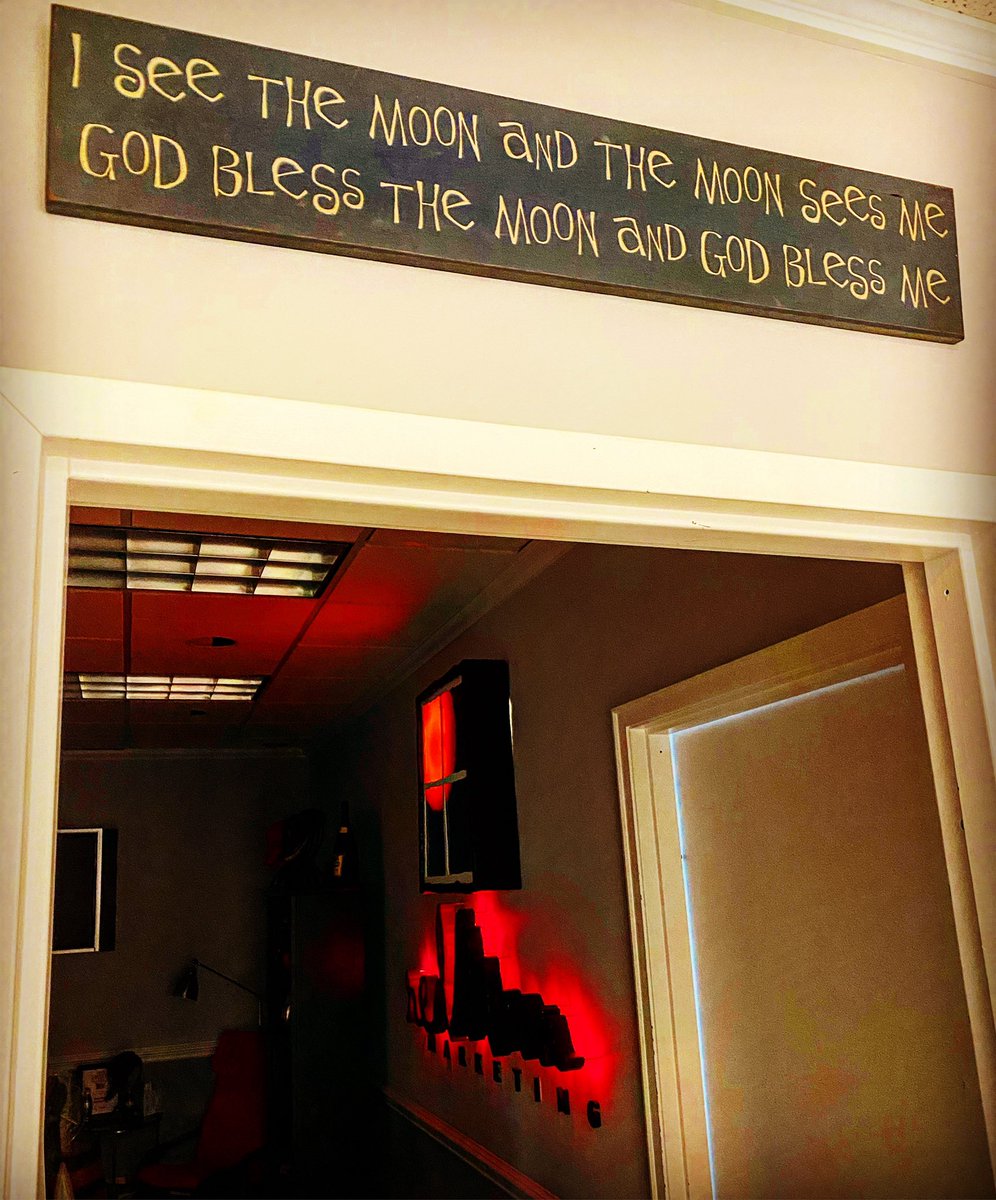 I SEE THE MOON AND THE MOON SEES ME
GOD BLESS THE MOON AND GOD BLESS ME
MARKETING